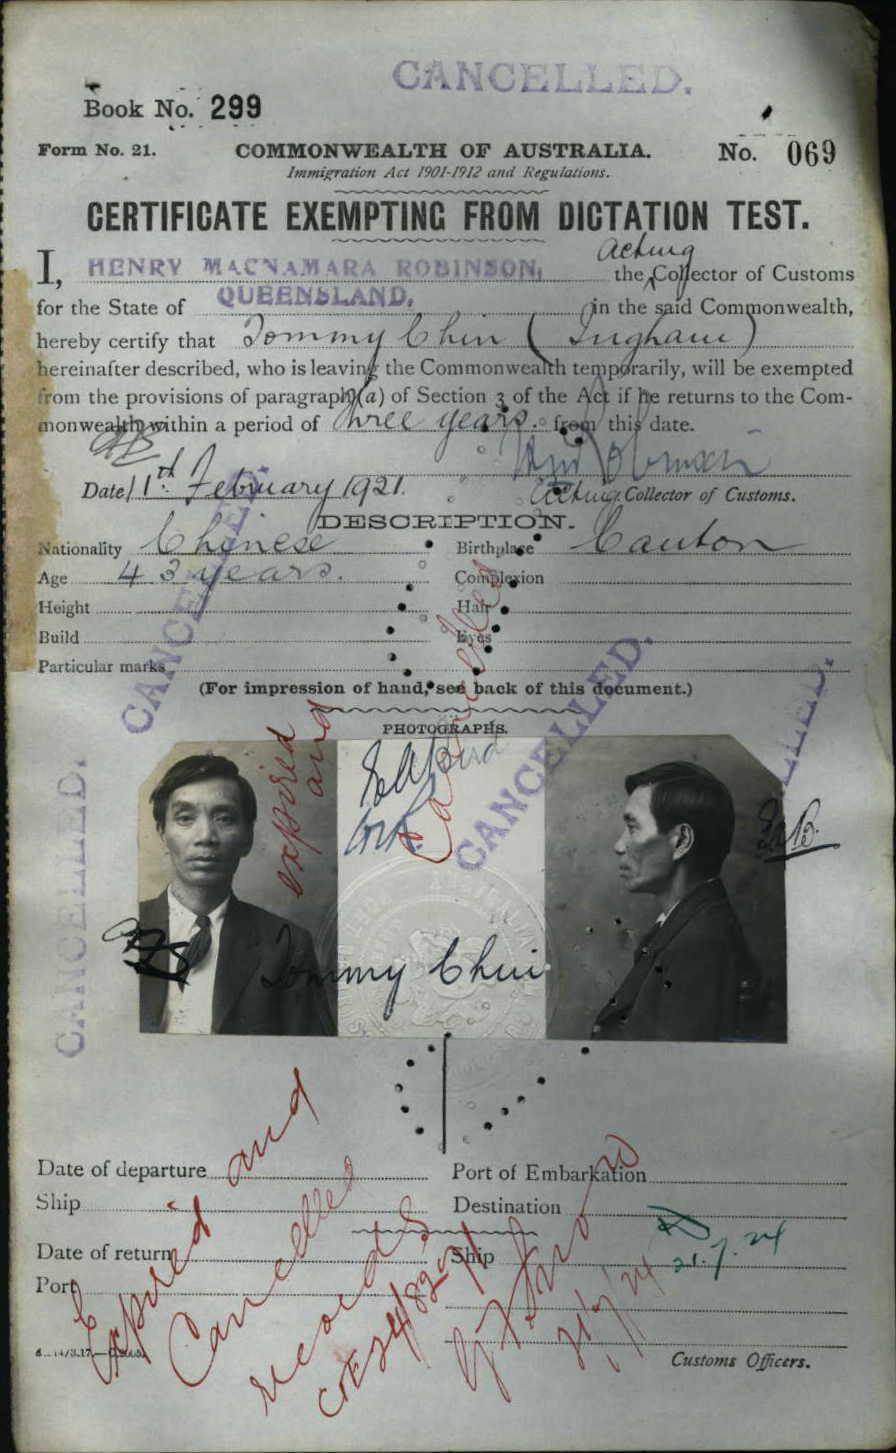 CANCELLED.
Book No. 299
Form No. 21. COMMONWEALTH OF AUSTRALIA. No. 069
Immigration Act 1901-1912 and Regulations.
CERTIFICATE EXEMPTING FROM DICTATION TEST.
acting
I, HENRY MACNAMARA ROBINSON, the Collector of Customs
for the State of QUEENSLAND, in the said Commonwealth,
hereby certify that Tommy Chin (Ingham)
hereinafter described, who is leaving the Commonwealth temporarily, will be exempted
from the provisions of paragraph (a) of Section 3 of the Act if he returns to the Com-
monwealth within a period of three years. from this date.
Date 1st February 1921. Acting Collector of Customs.
DESCRIPTION.
Nationality Chinese Birthplace Canton
Age 43 years. Complexion
Height Hair
Build Eyes
Particular marks
(For impression of hand, see back of this document.)
PHOTOGRAPHS.
CANCELLED.
CANCELLED.
CANCELLED.
LLED.
expired
and
Cancelled
Tommy Chin
Date of departure Port of Embarkation
Ship Destination
Date of return Ship
Port
21.7.24
Expired and
Cancelled
records
21/7/24
Customs Officers.